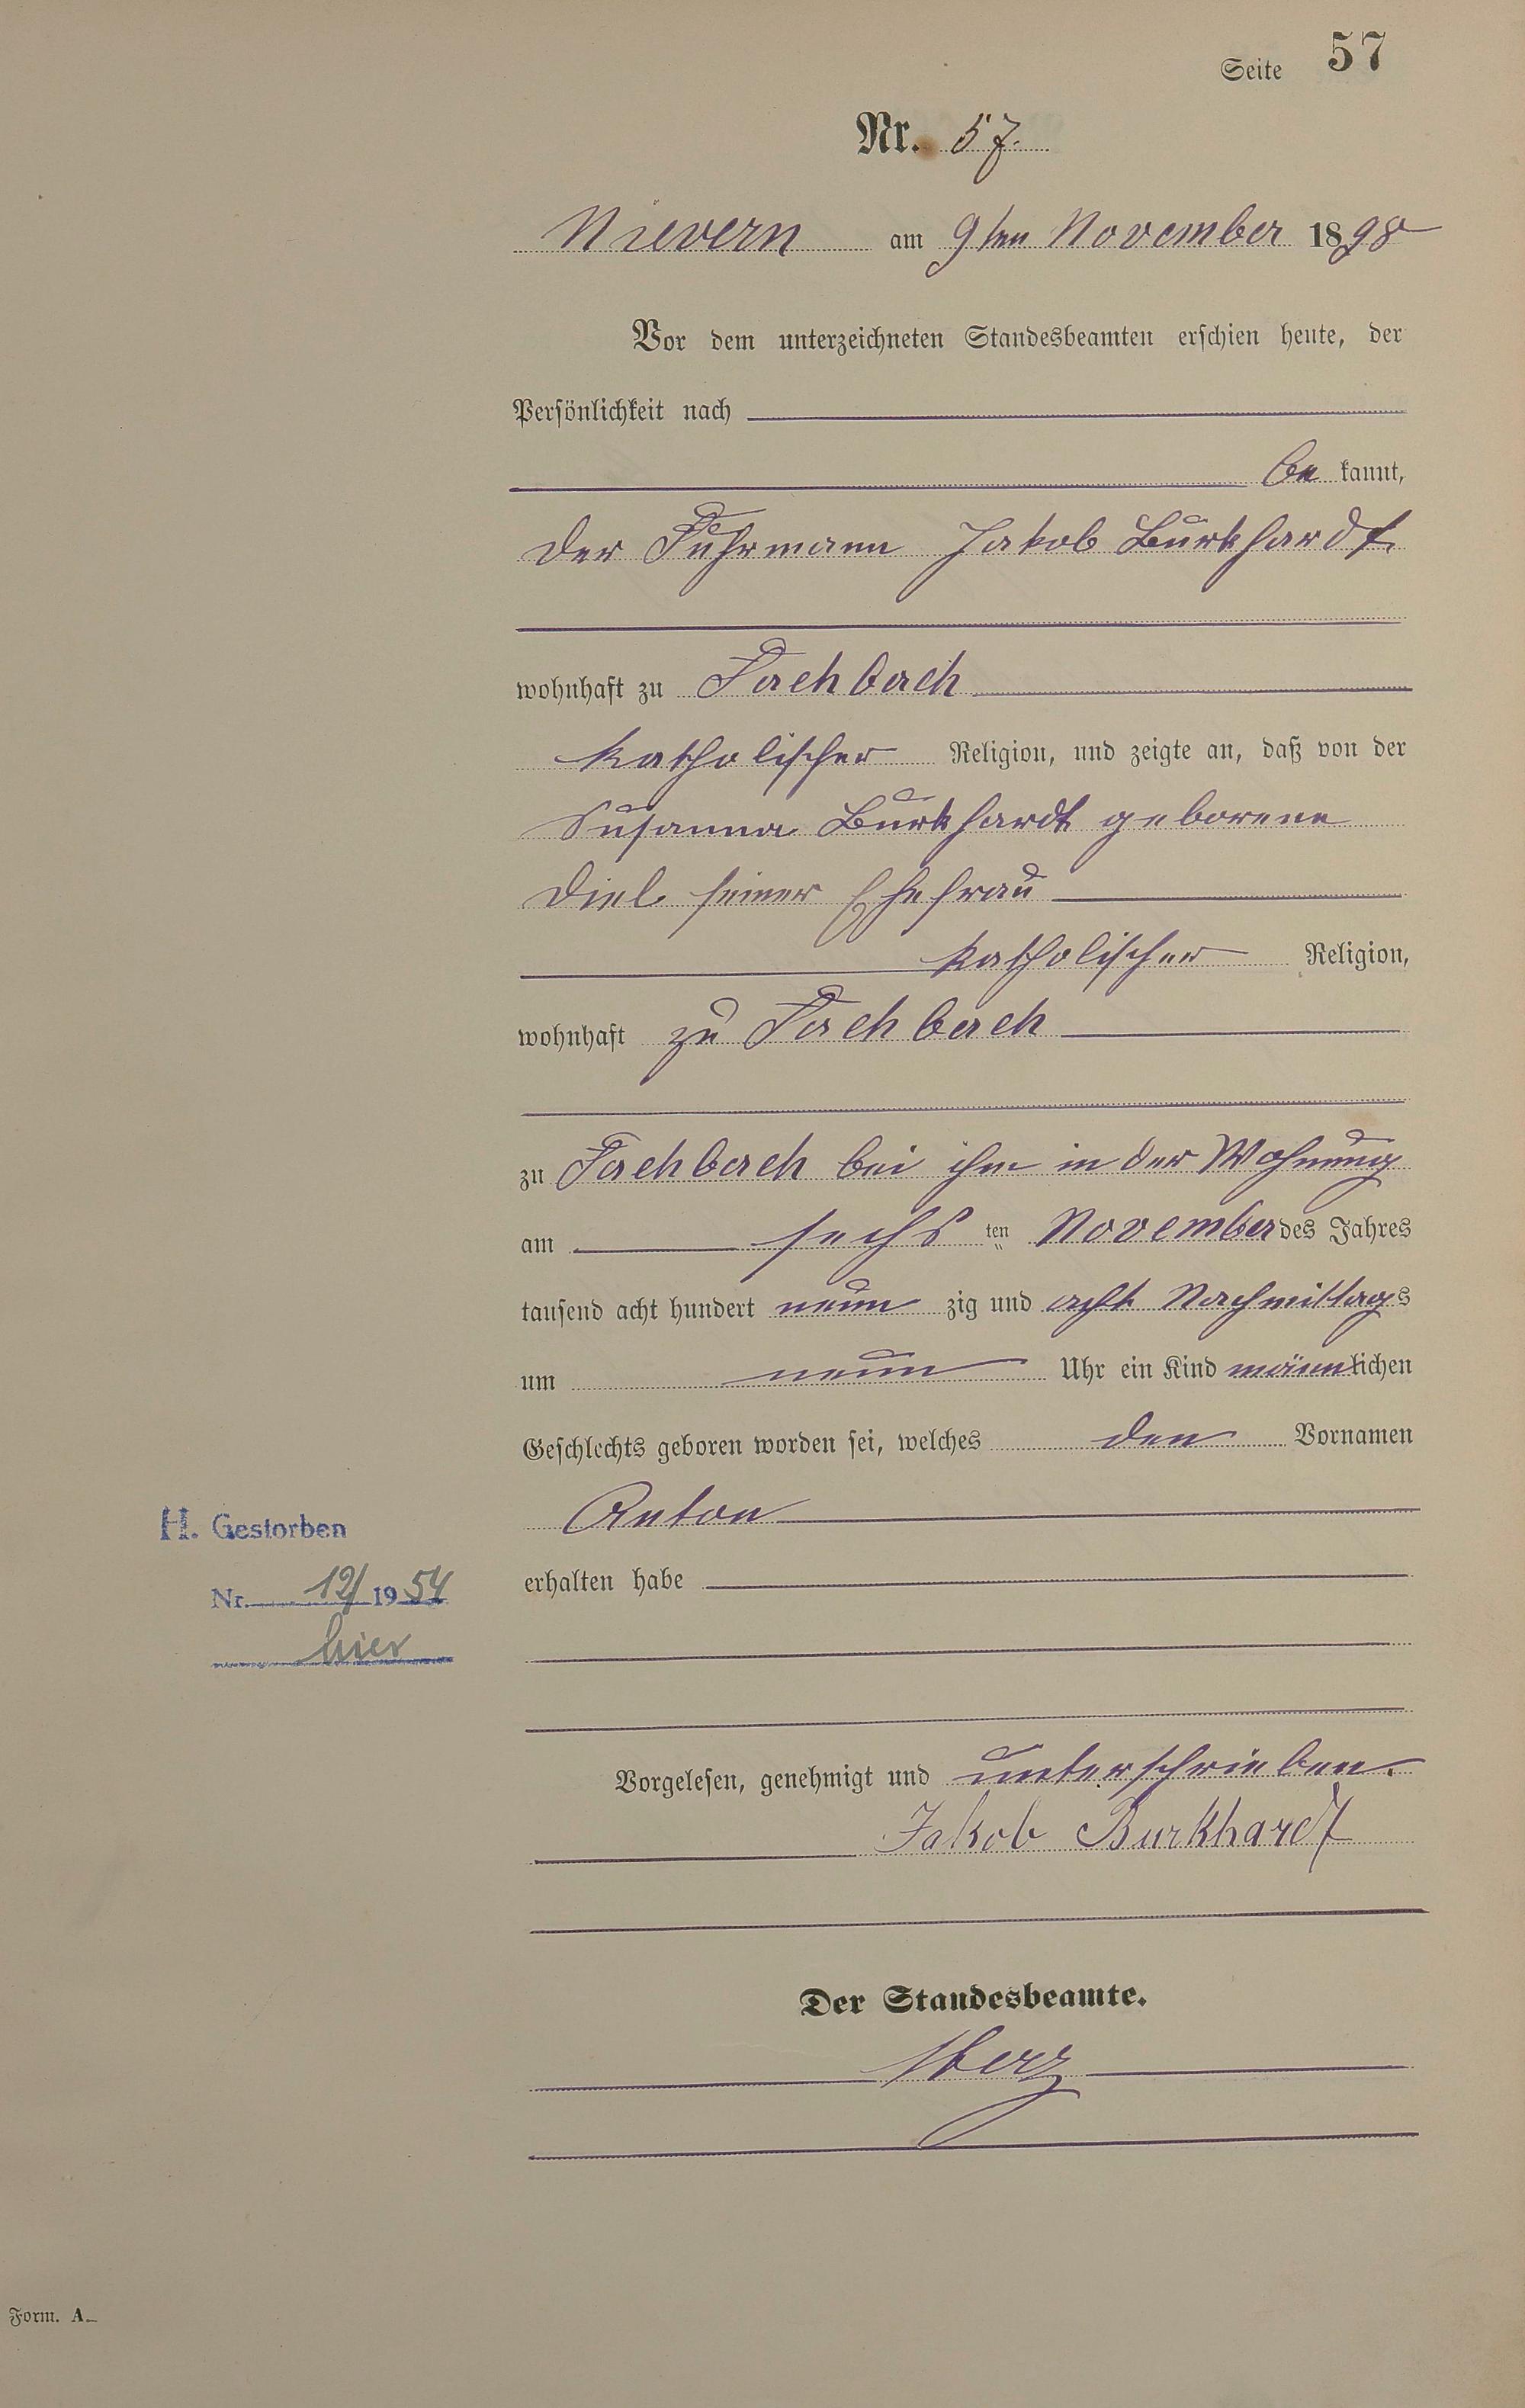 Seite 57
Nr. 57.
Nievern am 9ten November 1898
Vor dem unterzeichneten Standesbeamten erschien heute, der
Persönlichkeit nach
be kannt,
der Fuhrmann Jakob Burkhardt
wohnhaft zu Fachbach
katholischer Religion, und zeigte an, daß von der
Susanna Burkhardt geborene
Diel seiner Ehefrau
katholischer Religion,
wohnhaft zu Fachbach
zu Fachbach bei ihm in der Wohnung
am sechs ten November des Jahres
tausend acht hundert neun zig und acht Nachmittags
um neun Uhr ein Kind männlichen
Geschlechts geboren worden sei, welches den Vornamen
Anton
H. Gestorben
erhalten habe
Nr. 12/1954
hier
Vorgelesen, genehmigt und unterschrieben.
Jakob Burkhardt
Der Standesbeamte.
Form. A.